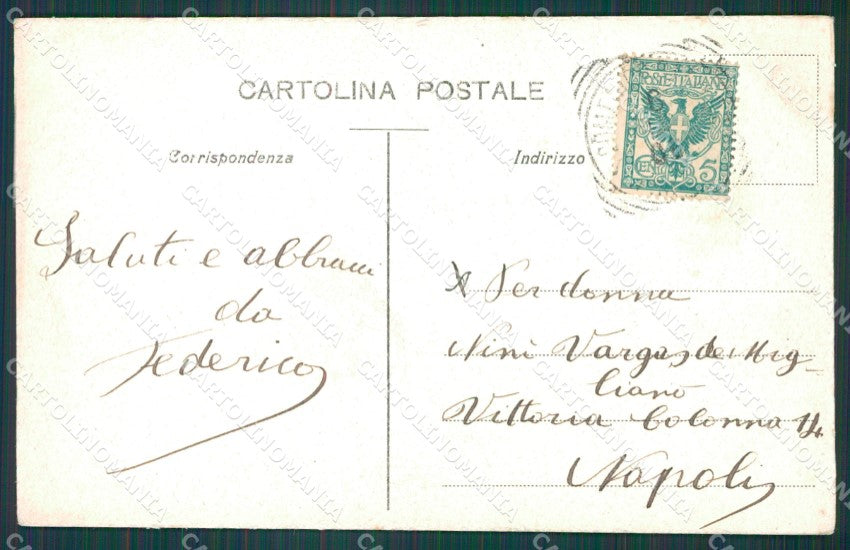 CARTOLINA POSTALE
Corrispondenza
Indirizzo
POSTE·ITALIANE
5
Saluti e abbracci
da
Federico
x Per donna
Nini Vargas de Mig-
liano
Vittoria Colonna 14
Napoli
CARTOLINOMANIA